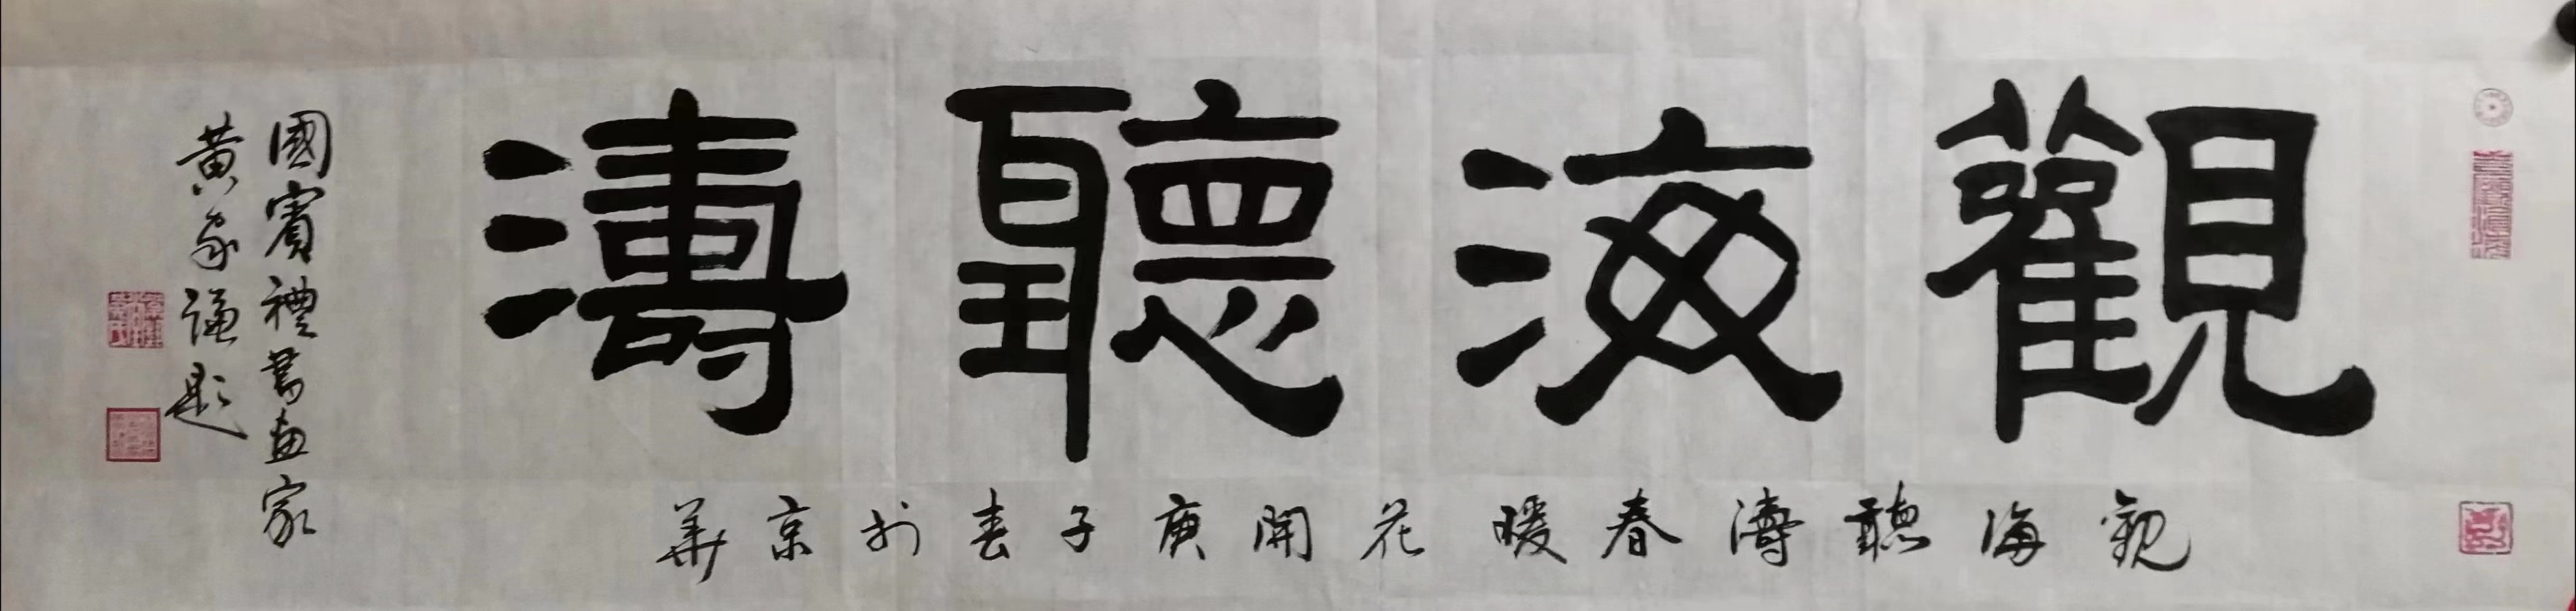 觀海聽濤
觀海聽濤春暖花開庚子春於京華
國賓禮書畫家
黄家謙題